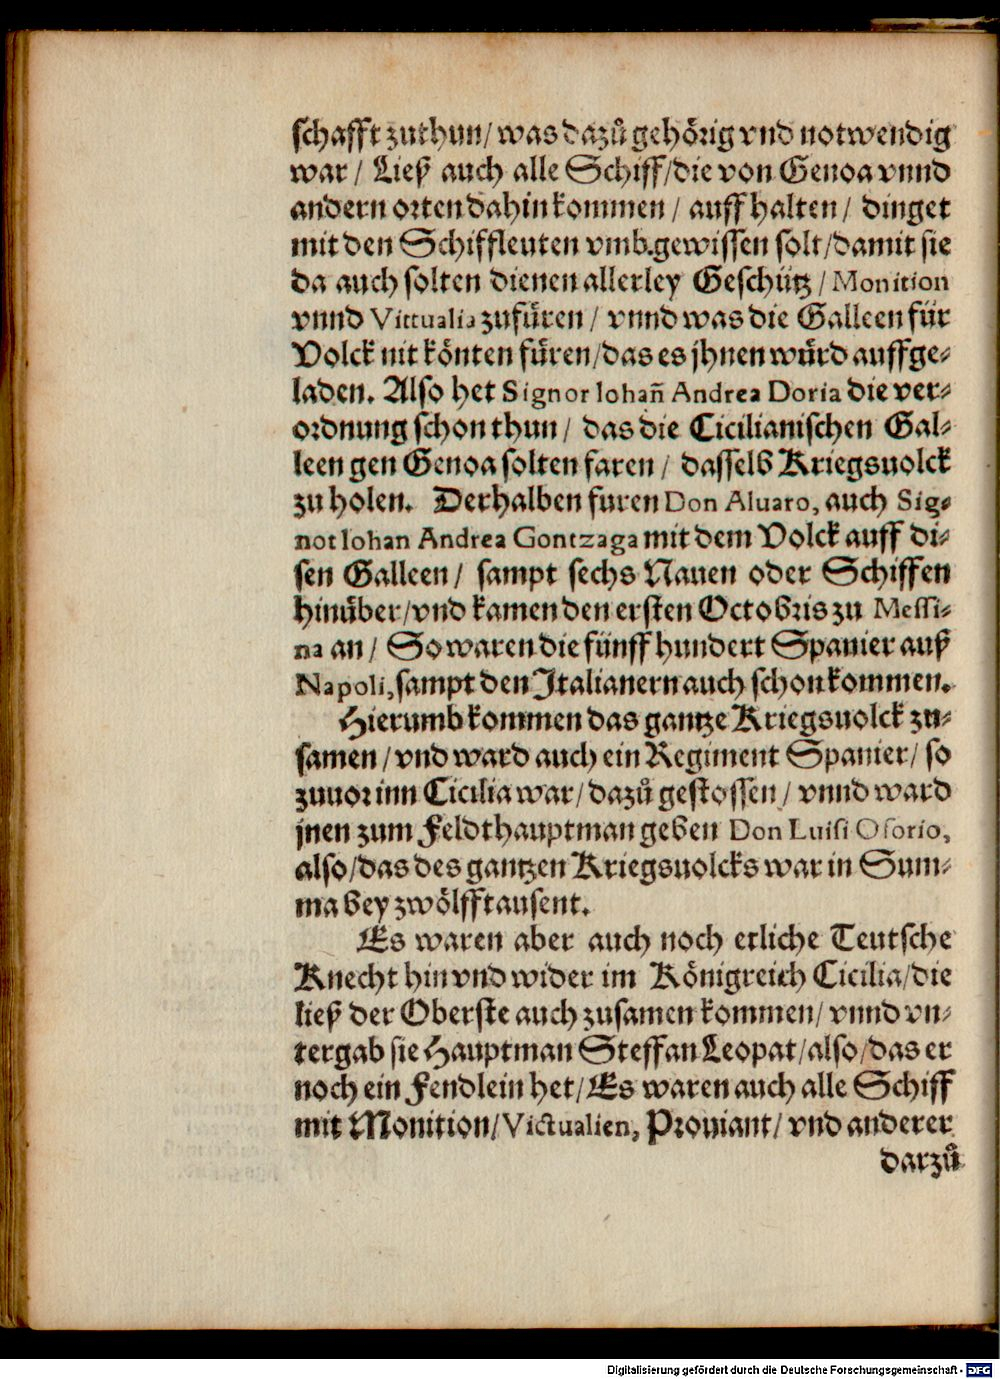 schafft zuthun/ was dazů gehörig vnd notwendig
war/ Ließ auch alle Schiff/die von Genoa vnnd
andern orten dahin kommen/ auffhalten/ dinget
mit den Schiffleuten vmb gewissen solt/damit sie
da auch solten dienen allerley Geschütz/ Monition
vnnd Victualia zufüren/ vnnd was die Galleen für
Volck nit könten füren/das es jhnen würd auffge⸗
laden. Also het Signor Iohañ Andrea Doria die ver⸗
ordnung schon thun/ das die Cicilianischen Gal⸗
leen gen Genoa solten faren/ dasselb Kriegsuolck
zu holen. Derhalben furen Don Aluaro, auch Sig⸗
nor Iohan Andrea Gontzaga mit dem Volck auff di⸗
sen Galleen/ sampt sechs Nauen oder Schiffen
hinüber/vnd kamen den ersten Octobris zu Messi⸗
na an/ So waren die fünff hundert Spanier auß
Napoli, sampt den Italianern auch schon kommen.
Hierumb kommen das gantze Kriegsuolck zu⸗
samen/vnd ward auch ein Regiment Spanier/ so
zuuor inn Cicilia war/dazů gestossen/ vnnd ward
jnen zum Feldthauptman geben Don Luisi Osorio,
also/das des gantzen Kriegsuolcks war in Sum⸗
ma bey zwölfftausent.
Es waren aber auch noch etliche Teutsche
Knecht hin vnd wider im Königreich Cicilia/die
ließ der Oberste auch zusamen kommen/ vnnd vn⸗
tergab sie Hauptman Steffan Leopat/also/das er
noch ein Fendlein het/Es waren auch alle Schiff
mit Monition/Victualien, Prouiant/ vnd anderer
darzů
Digitalisierung gefördert durch die Deutsche Forschungsgemeinschaft - DFG